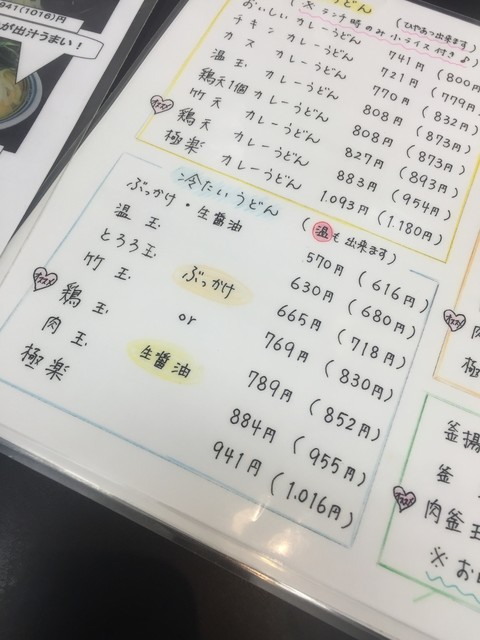 941(1016)円
が出汁うまい!
うどん (ひやあつ出来ます)
(※ランチ時のみ小ライス付き♪)
おいしいカレーうどん 741円 (800円
チキンカレーうどん 721円 (779円)
カスカレーうどん 770円 (832円)
温玉カレーうどん 808円 (873円)
鶏天1個カレーうどん 808円 (873円)
竹天カレーうどん 827円 (893円)
オススメ 鶏天カレーうどん 883円 (954円)
極楽カレーうどん 1,093円 (1,180円)
冷たいうどん (温も出来ます)
ぶっかけ・生醤油 570円 (616円)
温玉 630円 (680円)
とろろ玉 665円 (718円)
竹玉 769円 (830円)
オススメ 鶏玉 789円 (852円)
肉玉 884円 (955円)
極楽 941円 (1,016円)
ぶっかけ
or
生醤油
オススメ
肉
極
釜揚
釜
オススメ 肉釜玉
※お